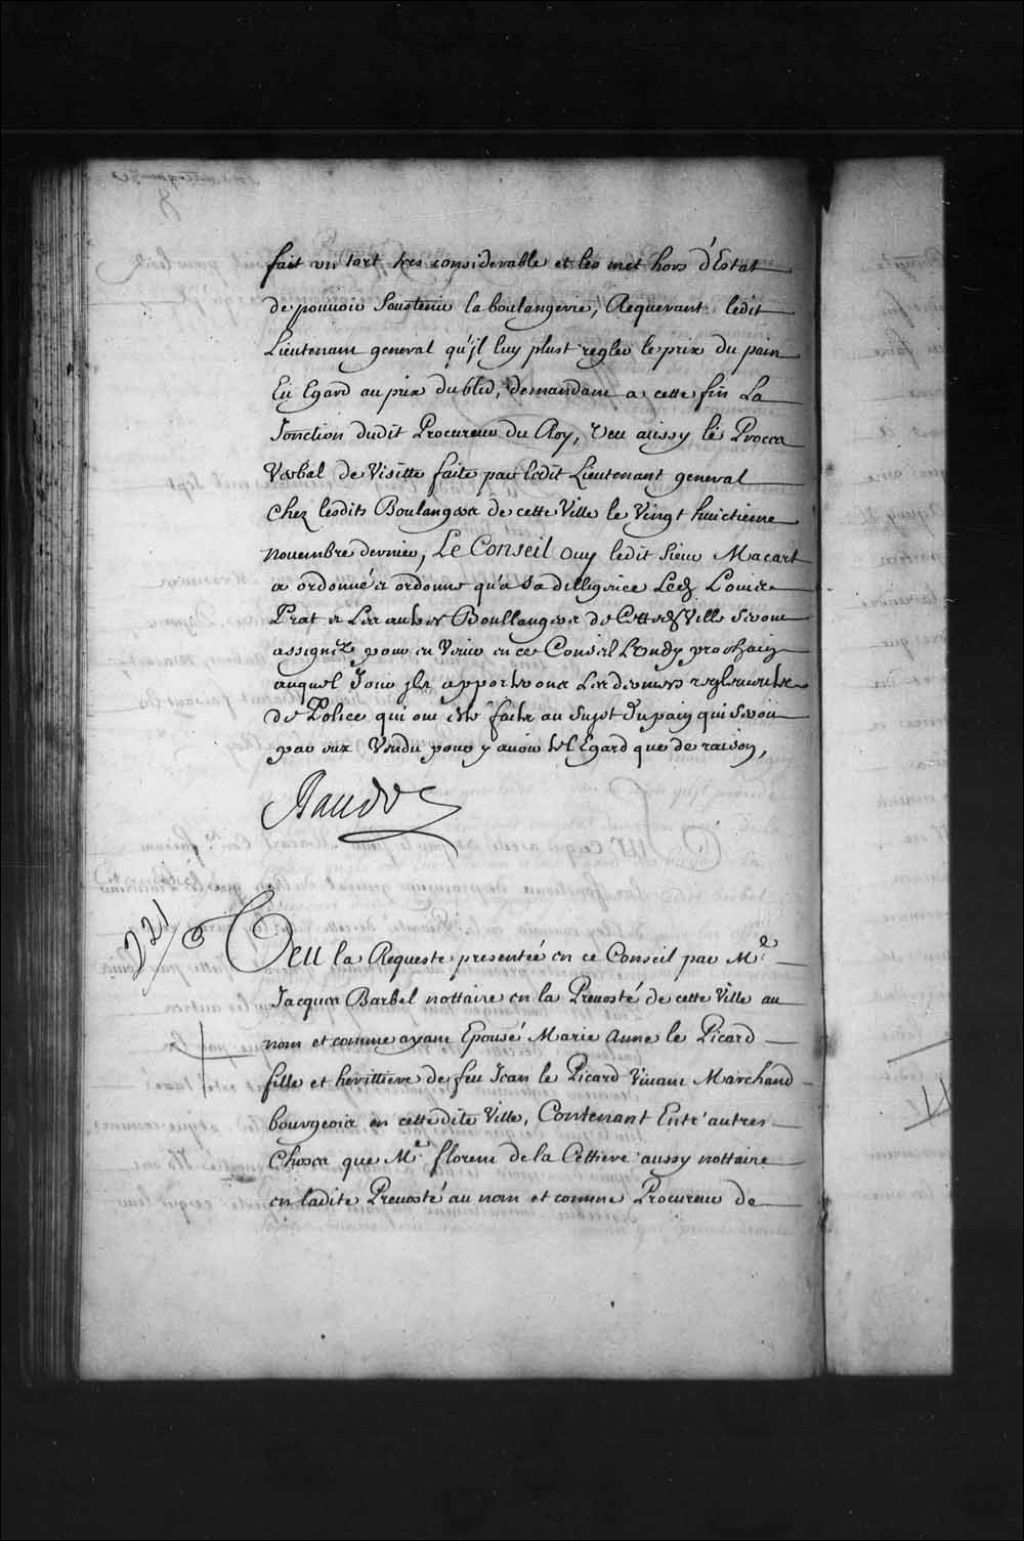 fait un tort tres considerable et les met hors d'Estat
de pouuoir soustenir la boulangerie, Requerant ledit
Lieutenant general qu'jl luy plust regler le prix du pain
Eü Egard au prix du bled, demandant a cette fin La
Jonction dudit Procureur du Roy, Veu aussy le Procez
Verbal de Visitte faite par ledit Lieutenant general
chez lesdits Boulangers de cette Ville le Vingt huictieme
nouembre dernier, Le Conseil ouy ledit sieur Macart
a ordonné et ordonne qu'a sa dilligence Led. Louis
Prat et Les autres Boullangers de Cetted. Ville seront
assignez pour en Venir en ce Conseil Lundy prochain
auquel Jour jls apporteront Les derniers reglements
de Police qui ont esté faits au sujet du pain qui seroit
par eux Vendu pour y auoir tel Egard que de raison,
221
Veu la Requeste presentée en ce Conseil par Me
Jacques Barbel nottaire en la Preuosté de cette Ville au
nom et comme ayant Epousé Marie Anne le Picard
fille et herittiere de feu Jean le Picard Viuant Marchand
bourgeois en cette dite Ville, Contenant Entr'autres
choses que Me florent de la Cettiere aussy nottaire
en ladite Preuosté au nom et comme Procureur de